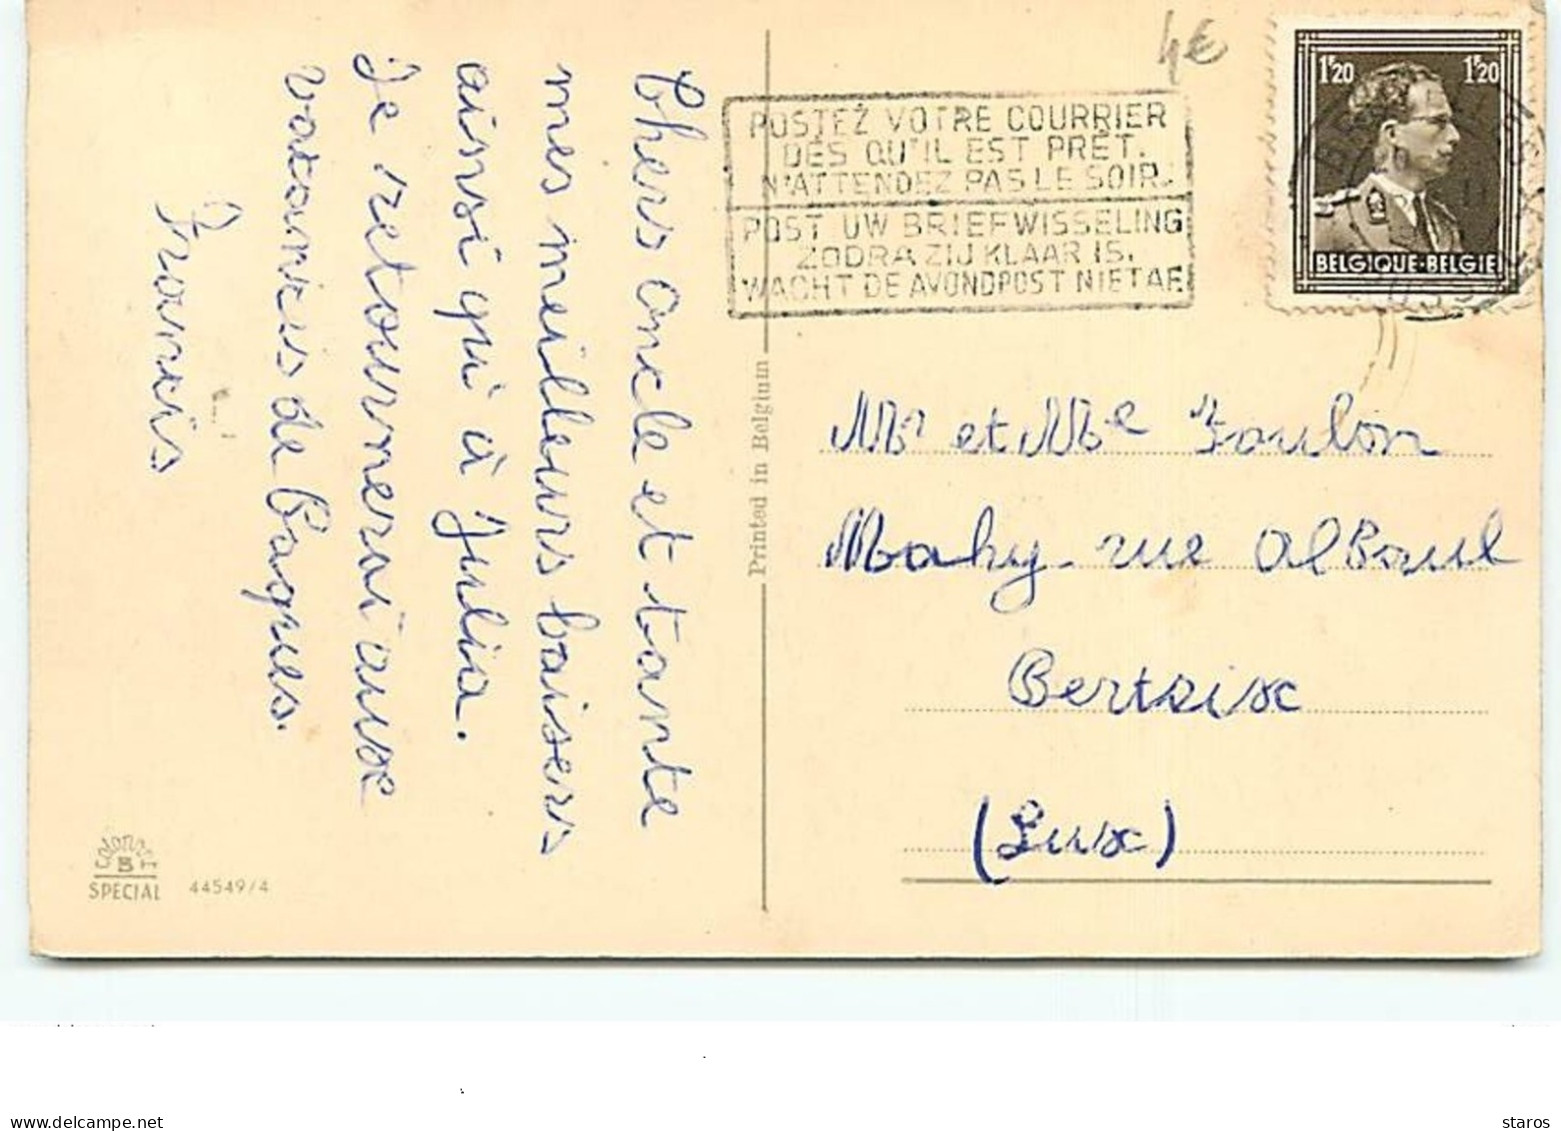 4€
POSTEZ VOTRE COURRIER
DÈS QU'IL EST PRÊT.
N'ATTENDEZ PAS LE SOIR.
POST UW BRIEFWISSELING
ZODRA ZIJ KLAAR IS.
WACHT DE AVONDPOST NIET AF.
1F20 1F20
BELGIQUE·BELGIE
Chers Oncle et tante
mes meilleurs baisers
ainsi qu'à Julia.
Je retournerai aux
vacances de Paques.
Francis
Printed in Belgium
Mr et Me Foulon
Mahy rue
Bertrix
(Lux)
SPECIAL 44549/4
www.delcampe.net
staros